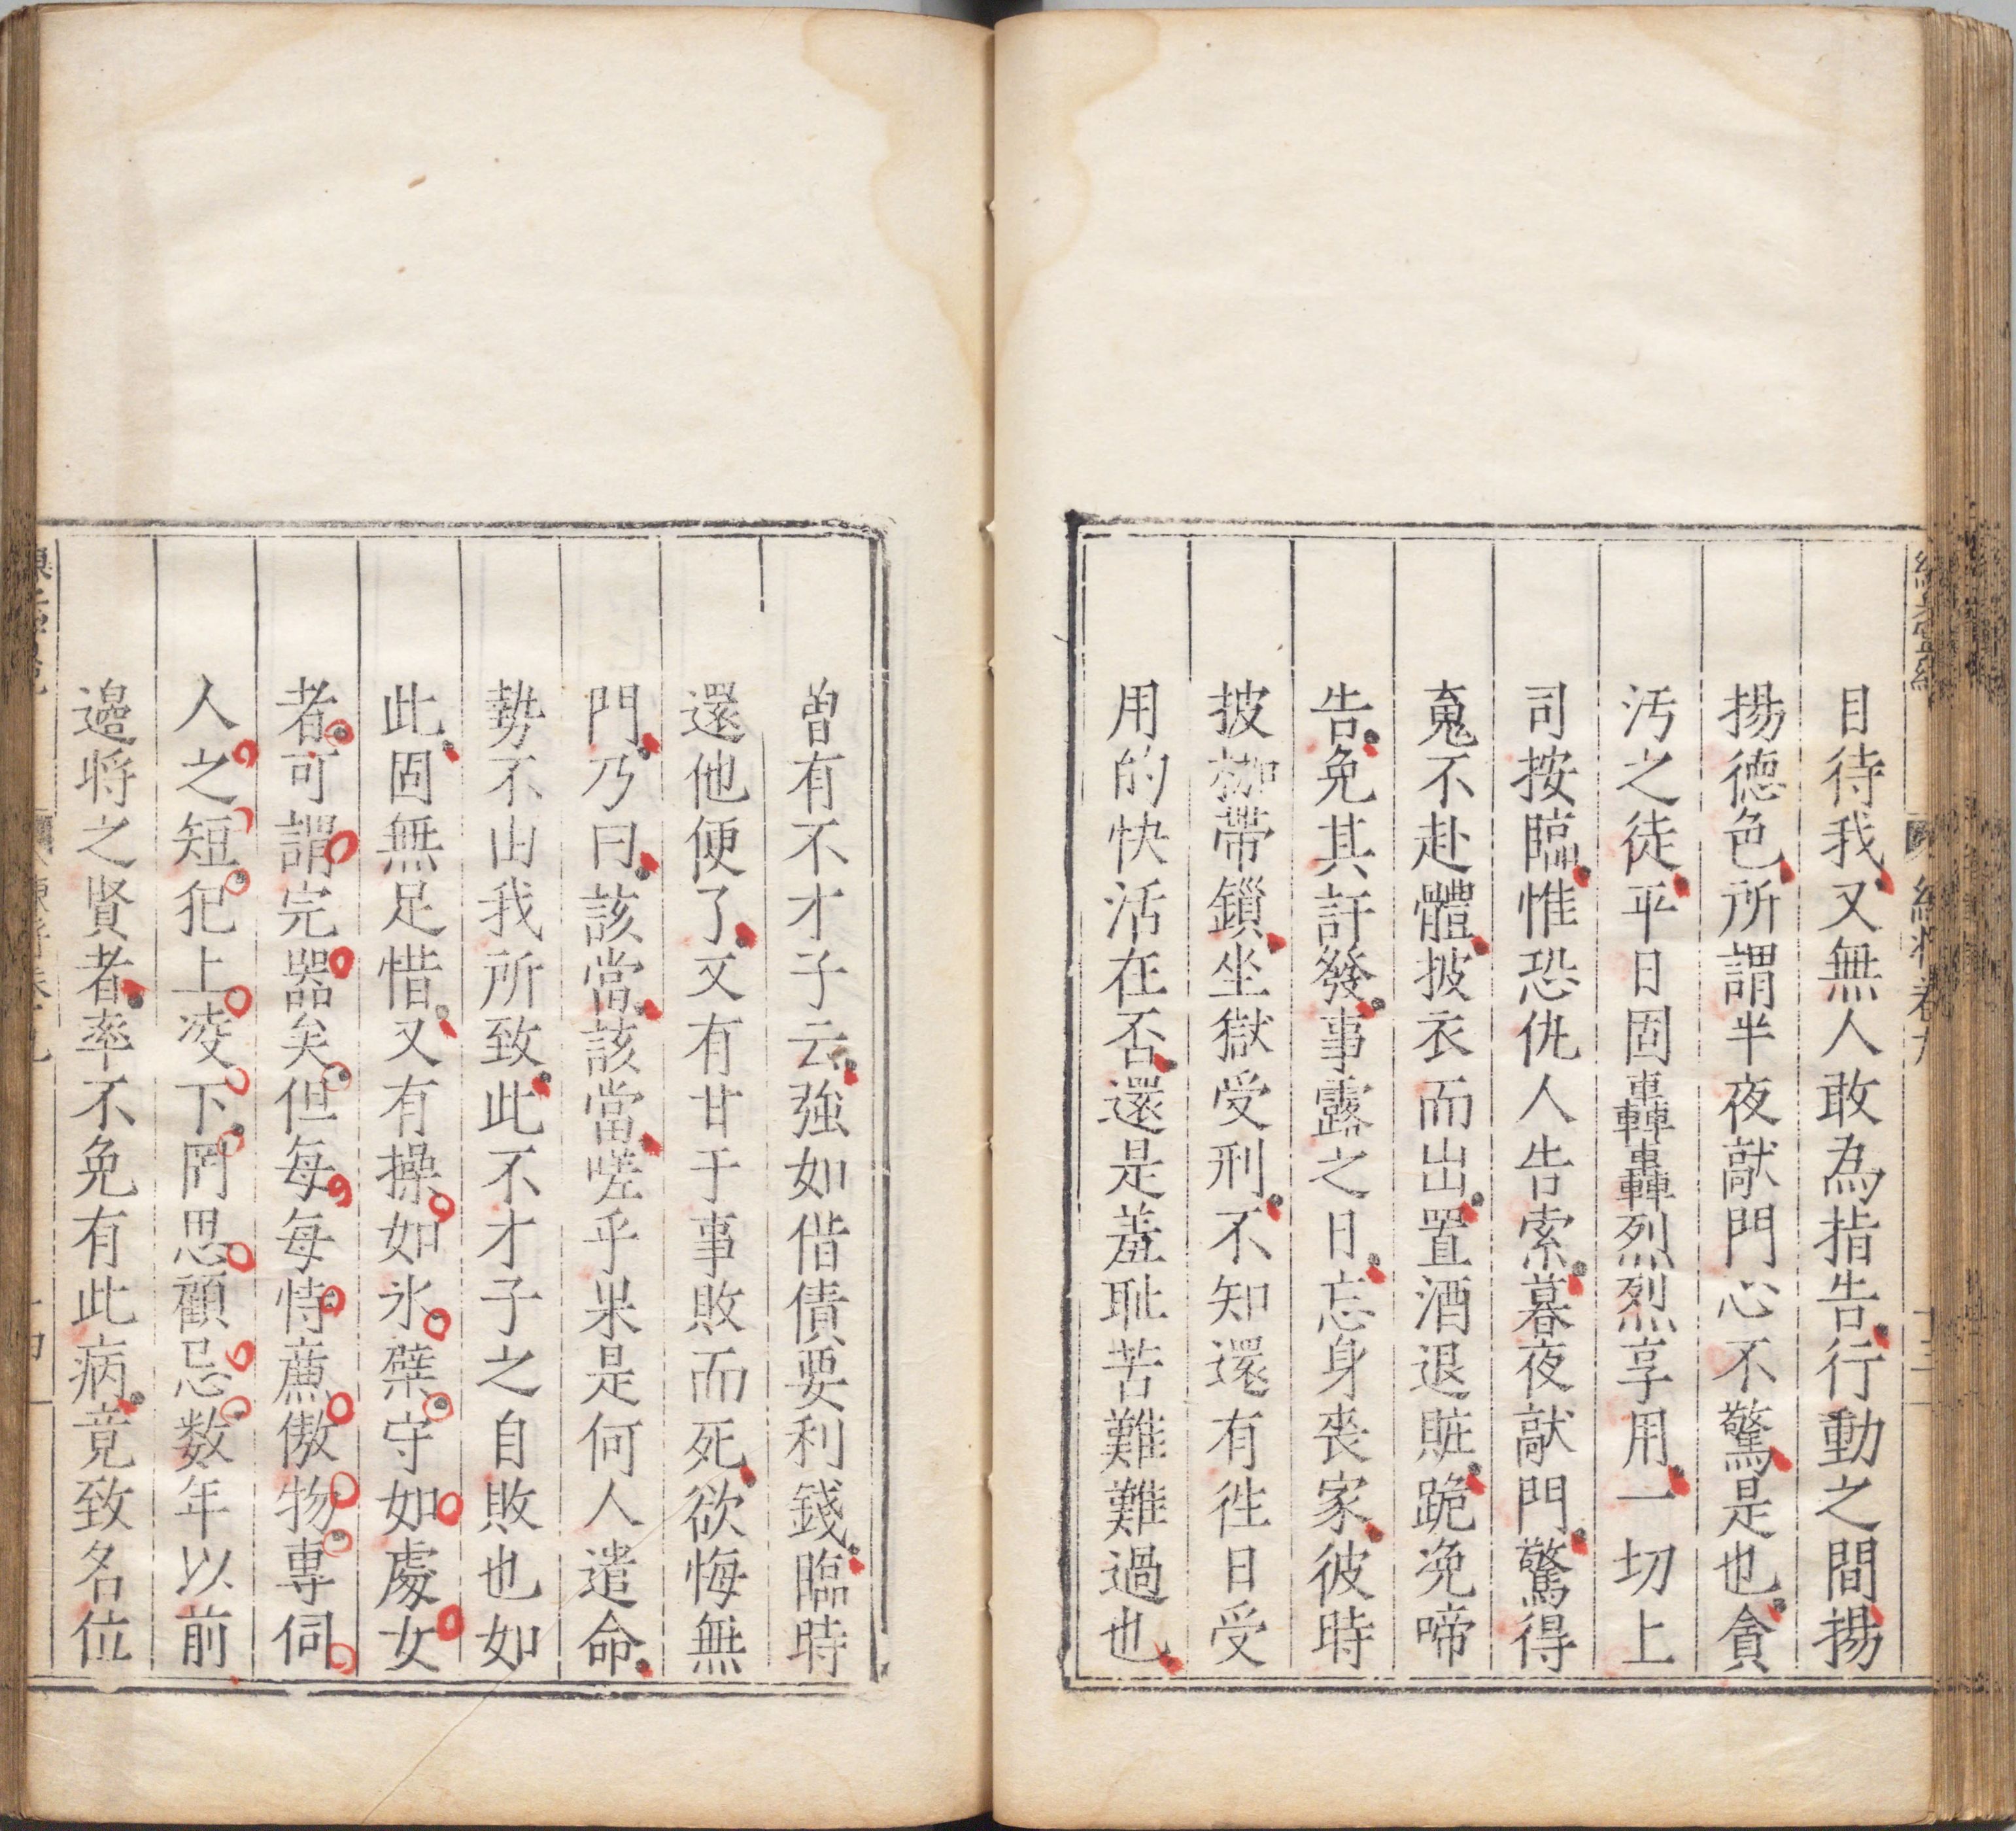 目待我又無人敢為指告行動之間揚
揚德色所謂半夜敲門心不驚是也貪
汚之徒平日固轟轟烈烈享用一切上
司按臨惟恐仇人告索暮夜敲門驚得
䰟不赴體披衣而出置酒退賍跪免啼
告免其訐發事露之日忘身喪家彼時
披枷帶鎖坐獄受刑不知還有徃日受
用的快活在否還是羞耻苦難難過也
曽有不才子云強如借債要利錢臨時
還他便了又有甘于事敗而死欲悔無
門乃曰該當該當嗟乎果是何人遣命
勢不由我所致此不才子之自敗也如
此固無足惜又有操如氷檗守如處女
者可謂完器矣但每每恃㢘傲物專伺
人之短犯上凌下罔思顧忌数年以前
邉將之賢者率不免有此病竟致名位